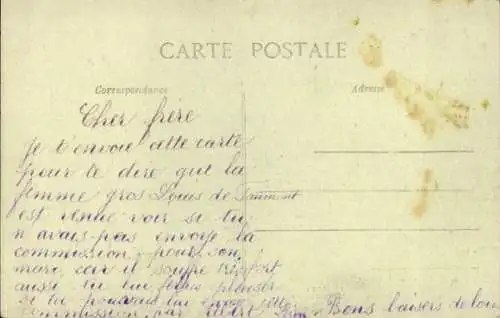 CARTE POSTALE
Correspondance
Adresse
Cher frère
Je t'envoie cette carte
pour te dire que la
femme gros Louis de
est venue voir si tu
n avais pas envoye la
commission pour son
mari, car il souffre très fort
aussi tu lui feras plaisir
si tu pouvais lui envoye cette
commission par
Bons baisers de tous